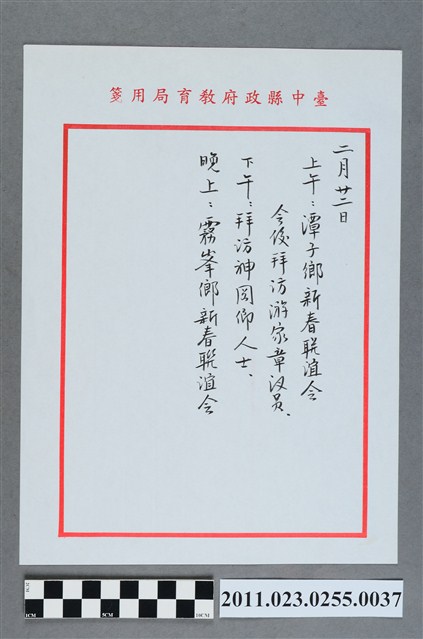 臺中縣政府教育局用箋
二月廿二日
上午：潭子鄉新春聯誼会
会後拜访游家章议员、
下午：拜访神岡鄉人士、
晚上：霧峯鄉新春聯誼会
1CM 5CM 10CM
2011.023.0255.0037